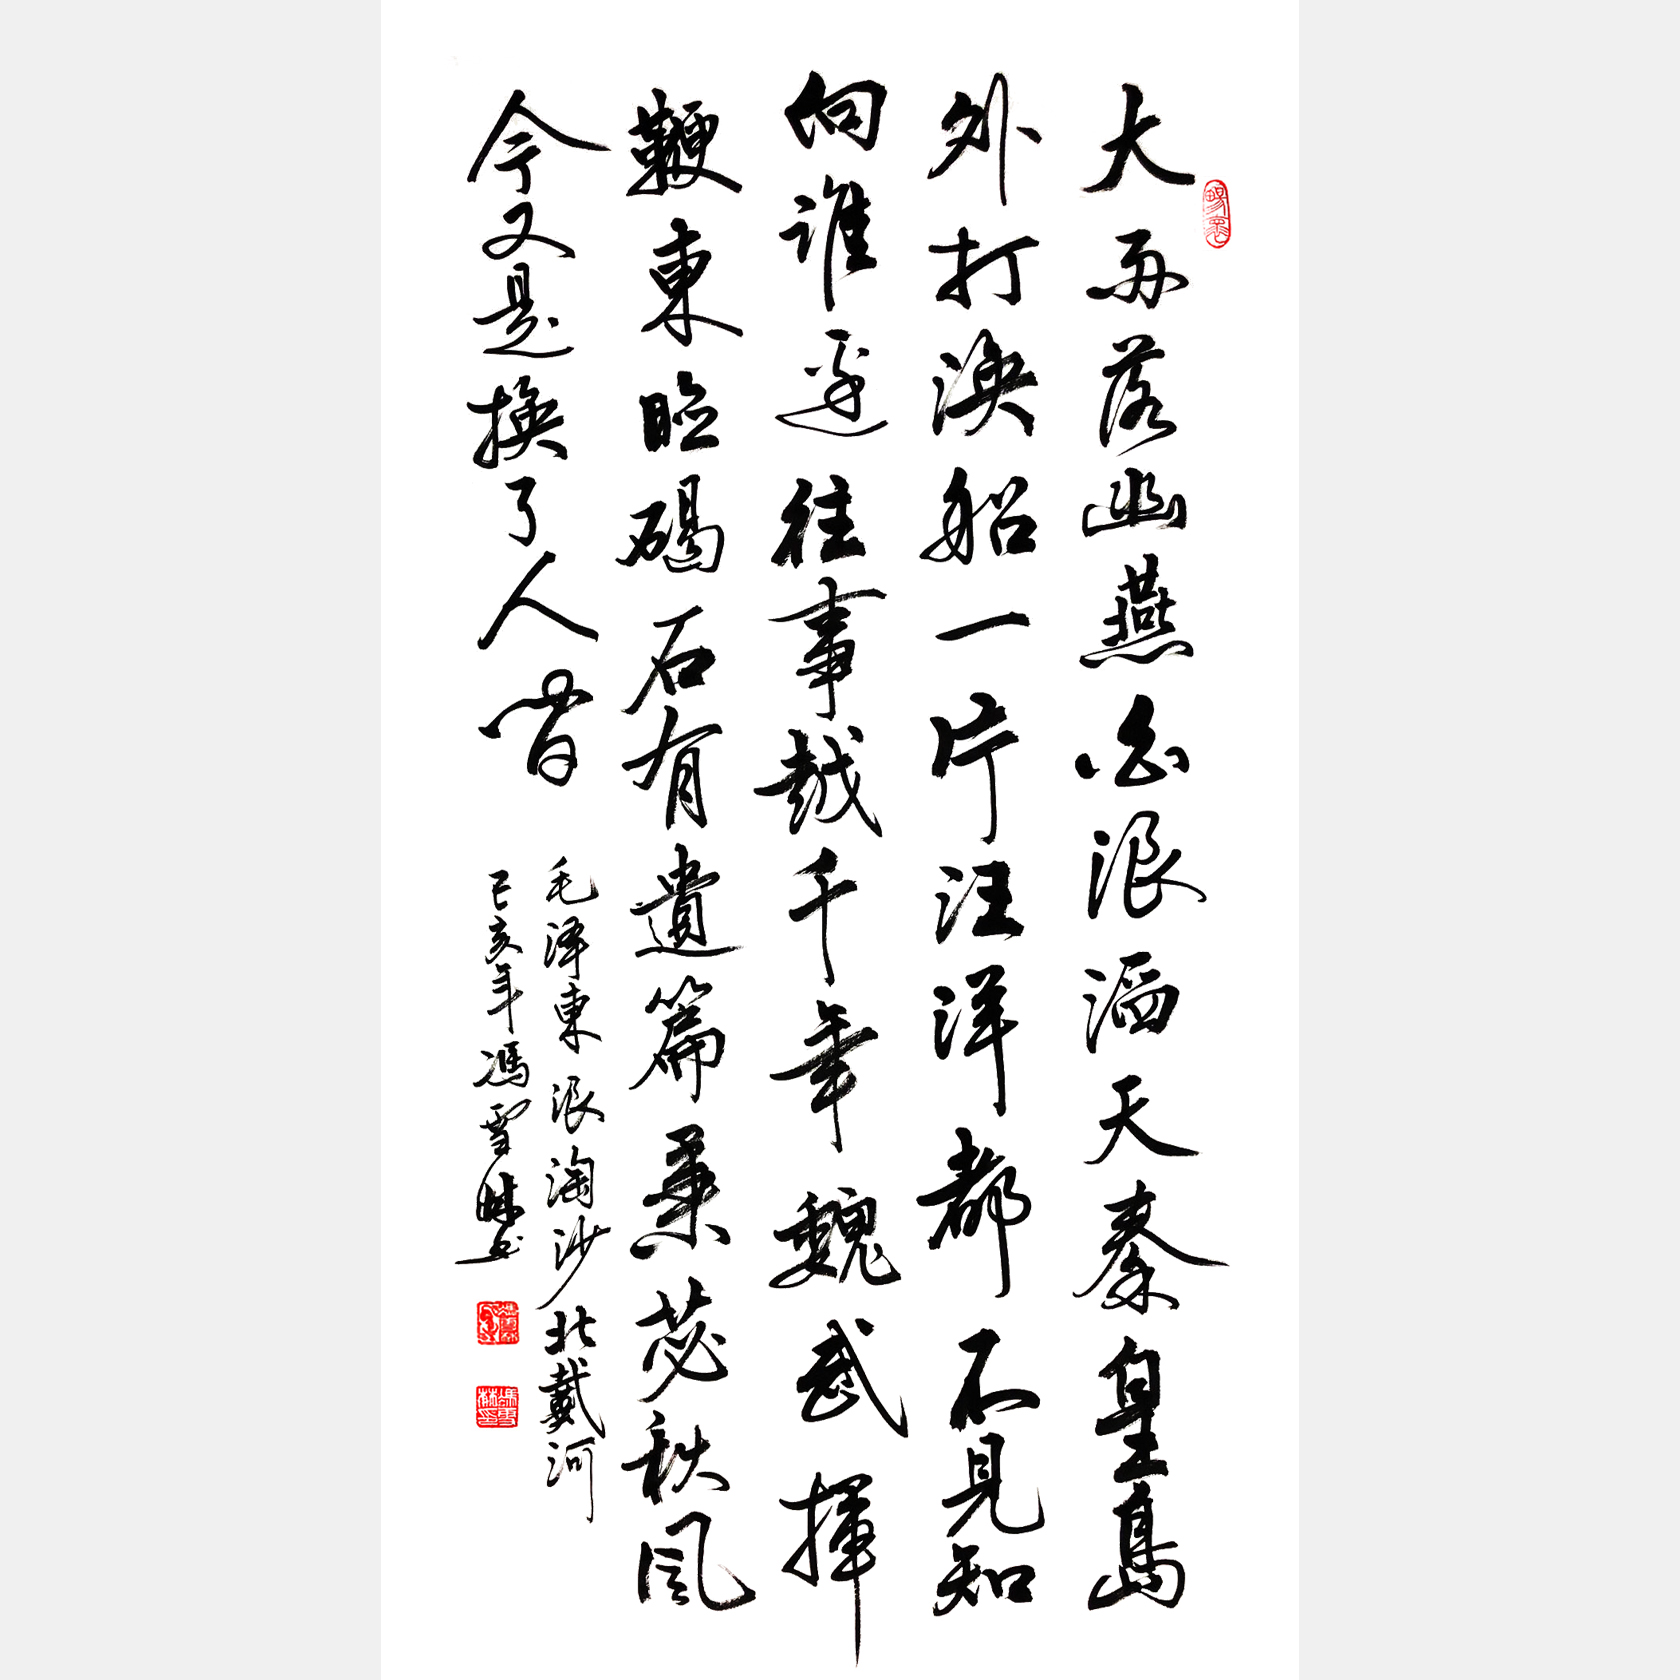 大雨落幽燕白浪滔天秦皇島
外打漁船一片汪洋都不見知
向谁邊往事越千年魏武揮
鞭東臨碣石有遺篇蕭瑟秋風
今又是換了人间
毛泽東浪淘沙北戴河
己亥年馮雪林书